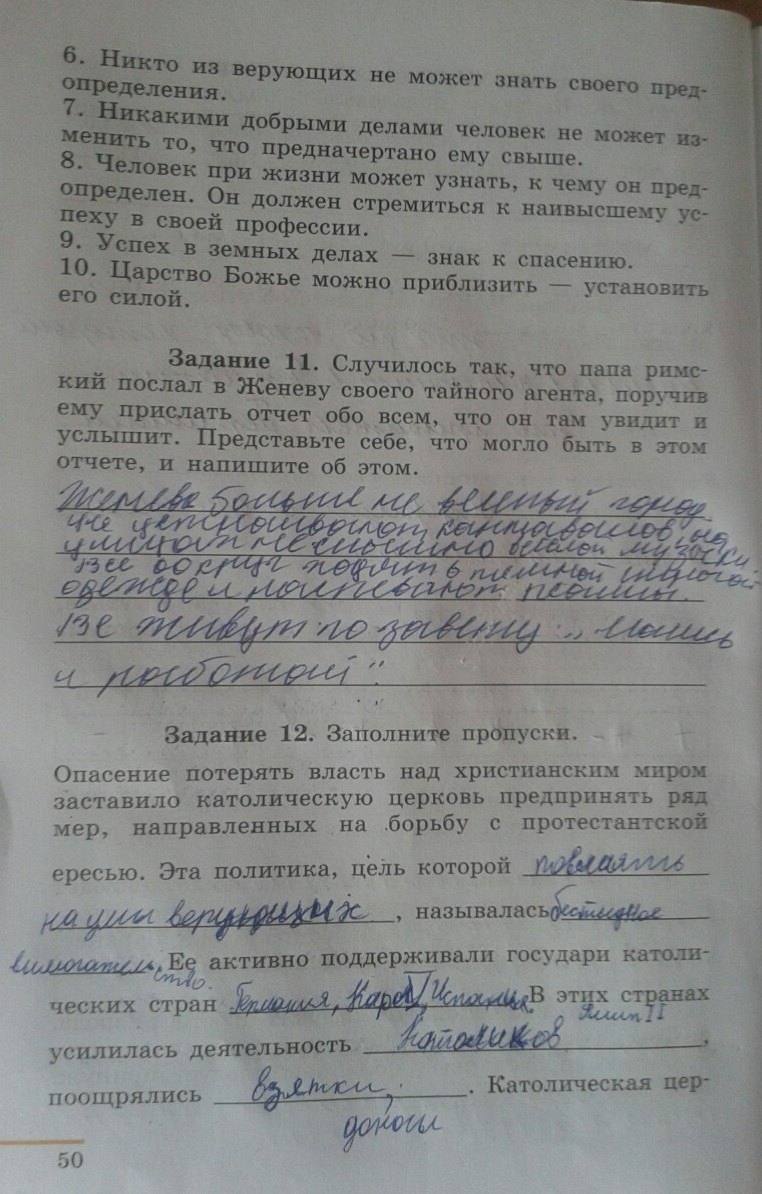 6. Никто из верующих не может знать своего пред-
определения.
7. Никакими добрыми делами человек не может из-
менить то, что предначертано ему свыше.
8. Человек при жизни может узнать, к чему он пред-
определен. Он должен стремиться к наивысшему ус-
пеху в своей профессии.
9. Успех в земных делах — знак к спасению.
10. Царство Божье можно приблизить — установить
его силой.
Задание 11. Случилось так, что папа рим-
ский послал в Женеву своего тайного агента, поручив
ему прислать отчет обо всем, что он там увидит и
услышит. Представьте себе, что могло быть в этом
отчете, и напишите об этом.
Женева больше не веселый город.
не устраивают карнавалов, на
улицах не слышно веселой музыки.
Все вокруг ходят в темной строгой
одежде и распевают псалмы.
Все живут по завету: „Молись
и работай".
Задание 12. Заполните пропуски.
Опасение потерять власть над христианским миром
заставило католическую церковь предпринять ряд
мер, направленных на борьбу с протестантской
ересью. Эта политика, цель которой повлиять
на умы верующих, называлась бестидное
вимогательство. Ее активно поддерживали государи католи-
ческих стран Германия, Карл V, Испания В этих странах
Филип II
усилилась деятельность Католиков,
поощрялись взятки, . Католическая цер-
доносы
50